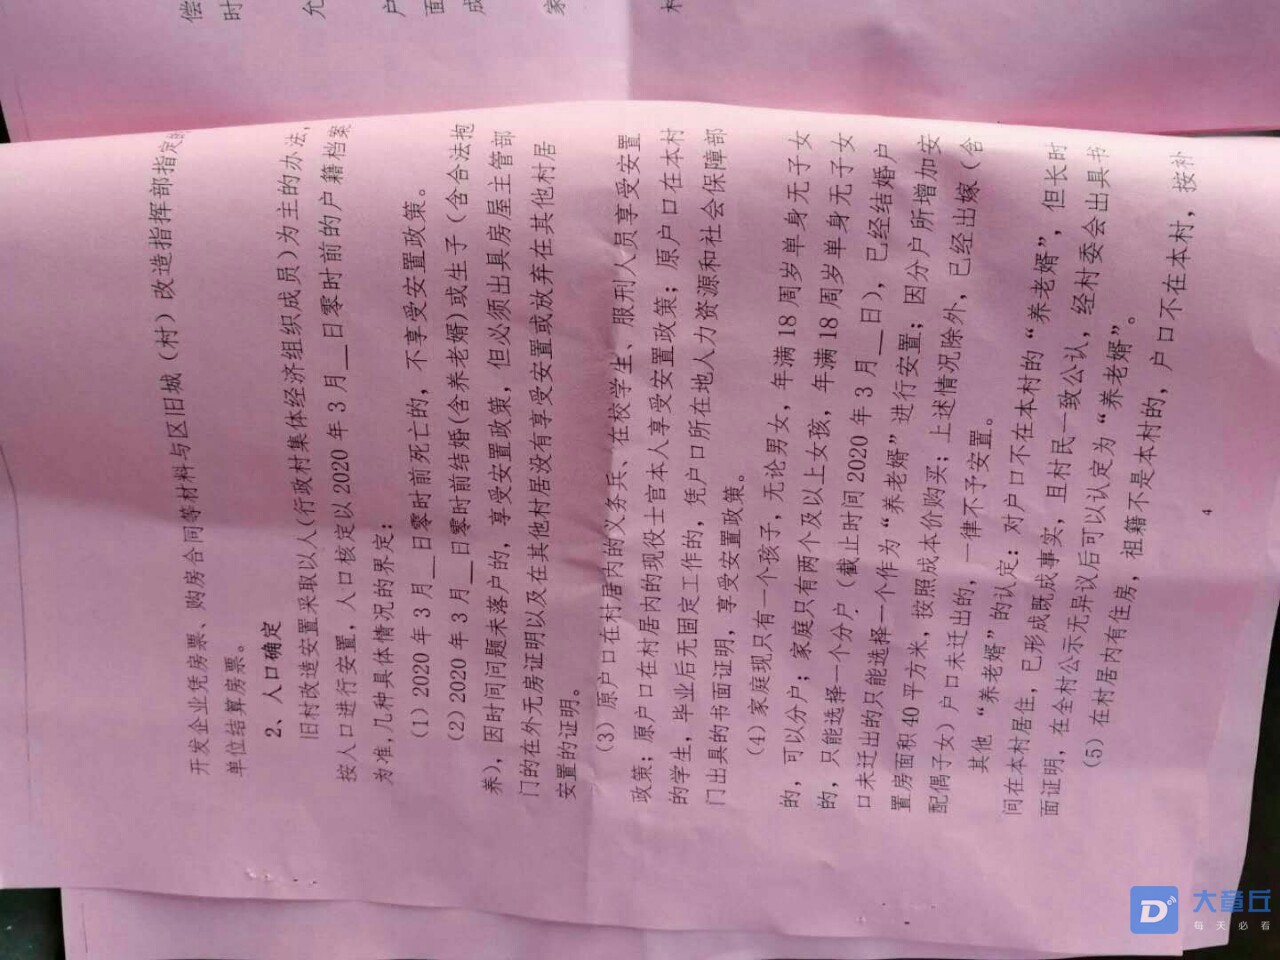 偿
时
允
户
面
成
家
开发企业凭房票、购房合同等材料与区旧城（村）改造指挥部指定的
单位结算房票。
2、人口确定
旧村改造安置采取以人（行政村集体经济组织成员）为主的办法,
按人口进行安置，人口核定以 2020 年 3 月__日零时前的户籍档案
为准,几种具体情况的界定：
（1）2020 年 3 月__日零时前死亡的，不享受安置政策。
（2）2020 年 3 月__日零时前结婚(含养老婿)或生子（含合法抱
养），因时间问题未落户的，享受安置政策，但必须出具房屋主管部
门的在外无房证明以及在其他村居没有享受安置或放弃在其他村居
安置的证明。
（3）原户口在村居内的义务兵、在校学生、服刑人员享受安置
政策；原户口在村居内的现役士官本人享受安置政策；原户口在本村
的学生，毕业后无固定工作的，凭户口所在地人力资源和社会保障部
门出具的书面证明，享受安置政策。
（4）家庭现只有一个孩子，无论男女，年满 18 周岁单身无子女
的，可以分户；家庭只有两个及以上女孩，年满 18 周岁单身无子女
的，只能选择一个分户（截止时间 2020 年 3 月__日），已经结婚户
口未迁出的只能选择一个作为“养老婿”进行安置；因分户所增加安
置房面积 40 平方米，按照成本价购买；上述情况除外，已经出嫁（含
配偶子女）户口未迁出的，一律不予安置。
其他“养老婿”的认定：对户口不在本村的“养老婿”，但长时
间在本村居住，已形成既成事实，且村民一致公认，经村委会出具书
面证明，在全村公示无异议后可以认定为“养老婿”。
（5）在村居内有住房，祖籍不是本村的，户口不在本村，按补
4
大章丘
每天必看